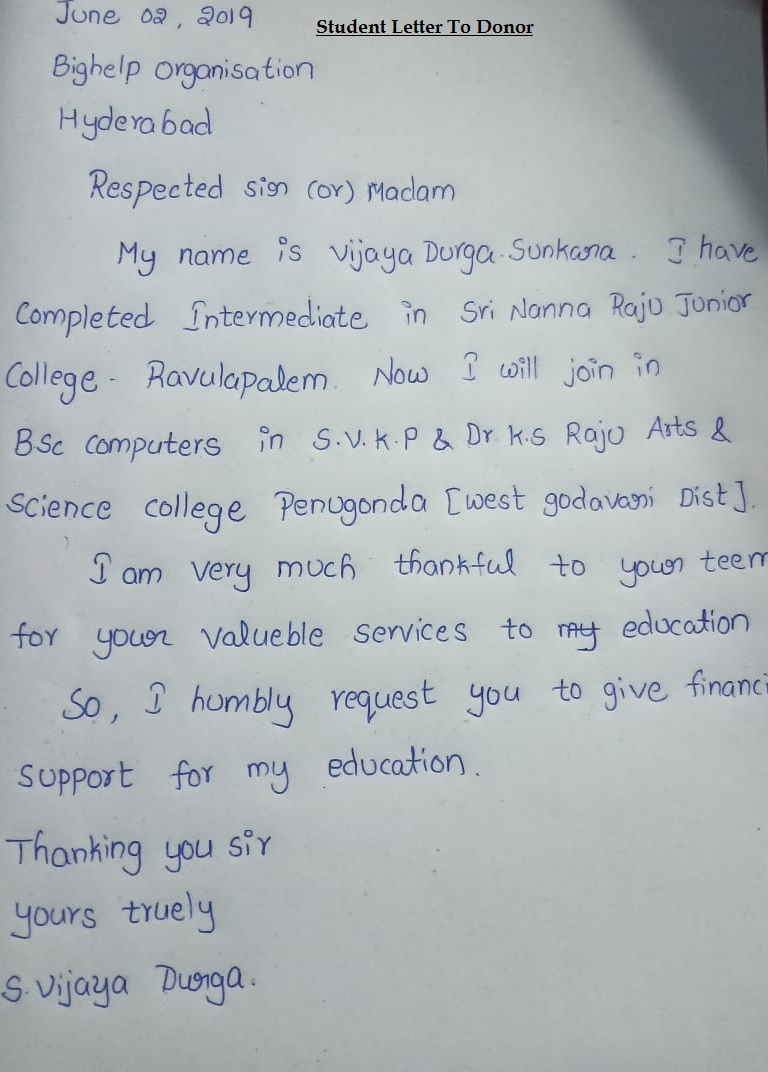 June 02, 2019
Student Letter To Donor
Bighelp organisation
Hyderabad
Respected sir (or) Madam
My name is Vijaya Durga Sunkara. I have
Completed Intermediate in Sri Nanna Raju Junior
College - Ravulapalem. Now I will join in
B.Sc computers in S.V.K.P & Dr. K.S Raju Arts &
Science college Penugonda [west godavari Dist].
I am very much thankful to your teem
for your valueble services to my education
So, I humbly request you to give financi
support for my education.
Thanking you sir
yours truely
S. Vijaya Durga.